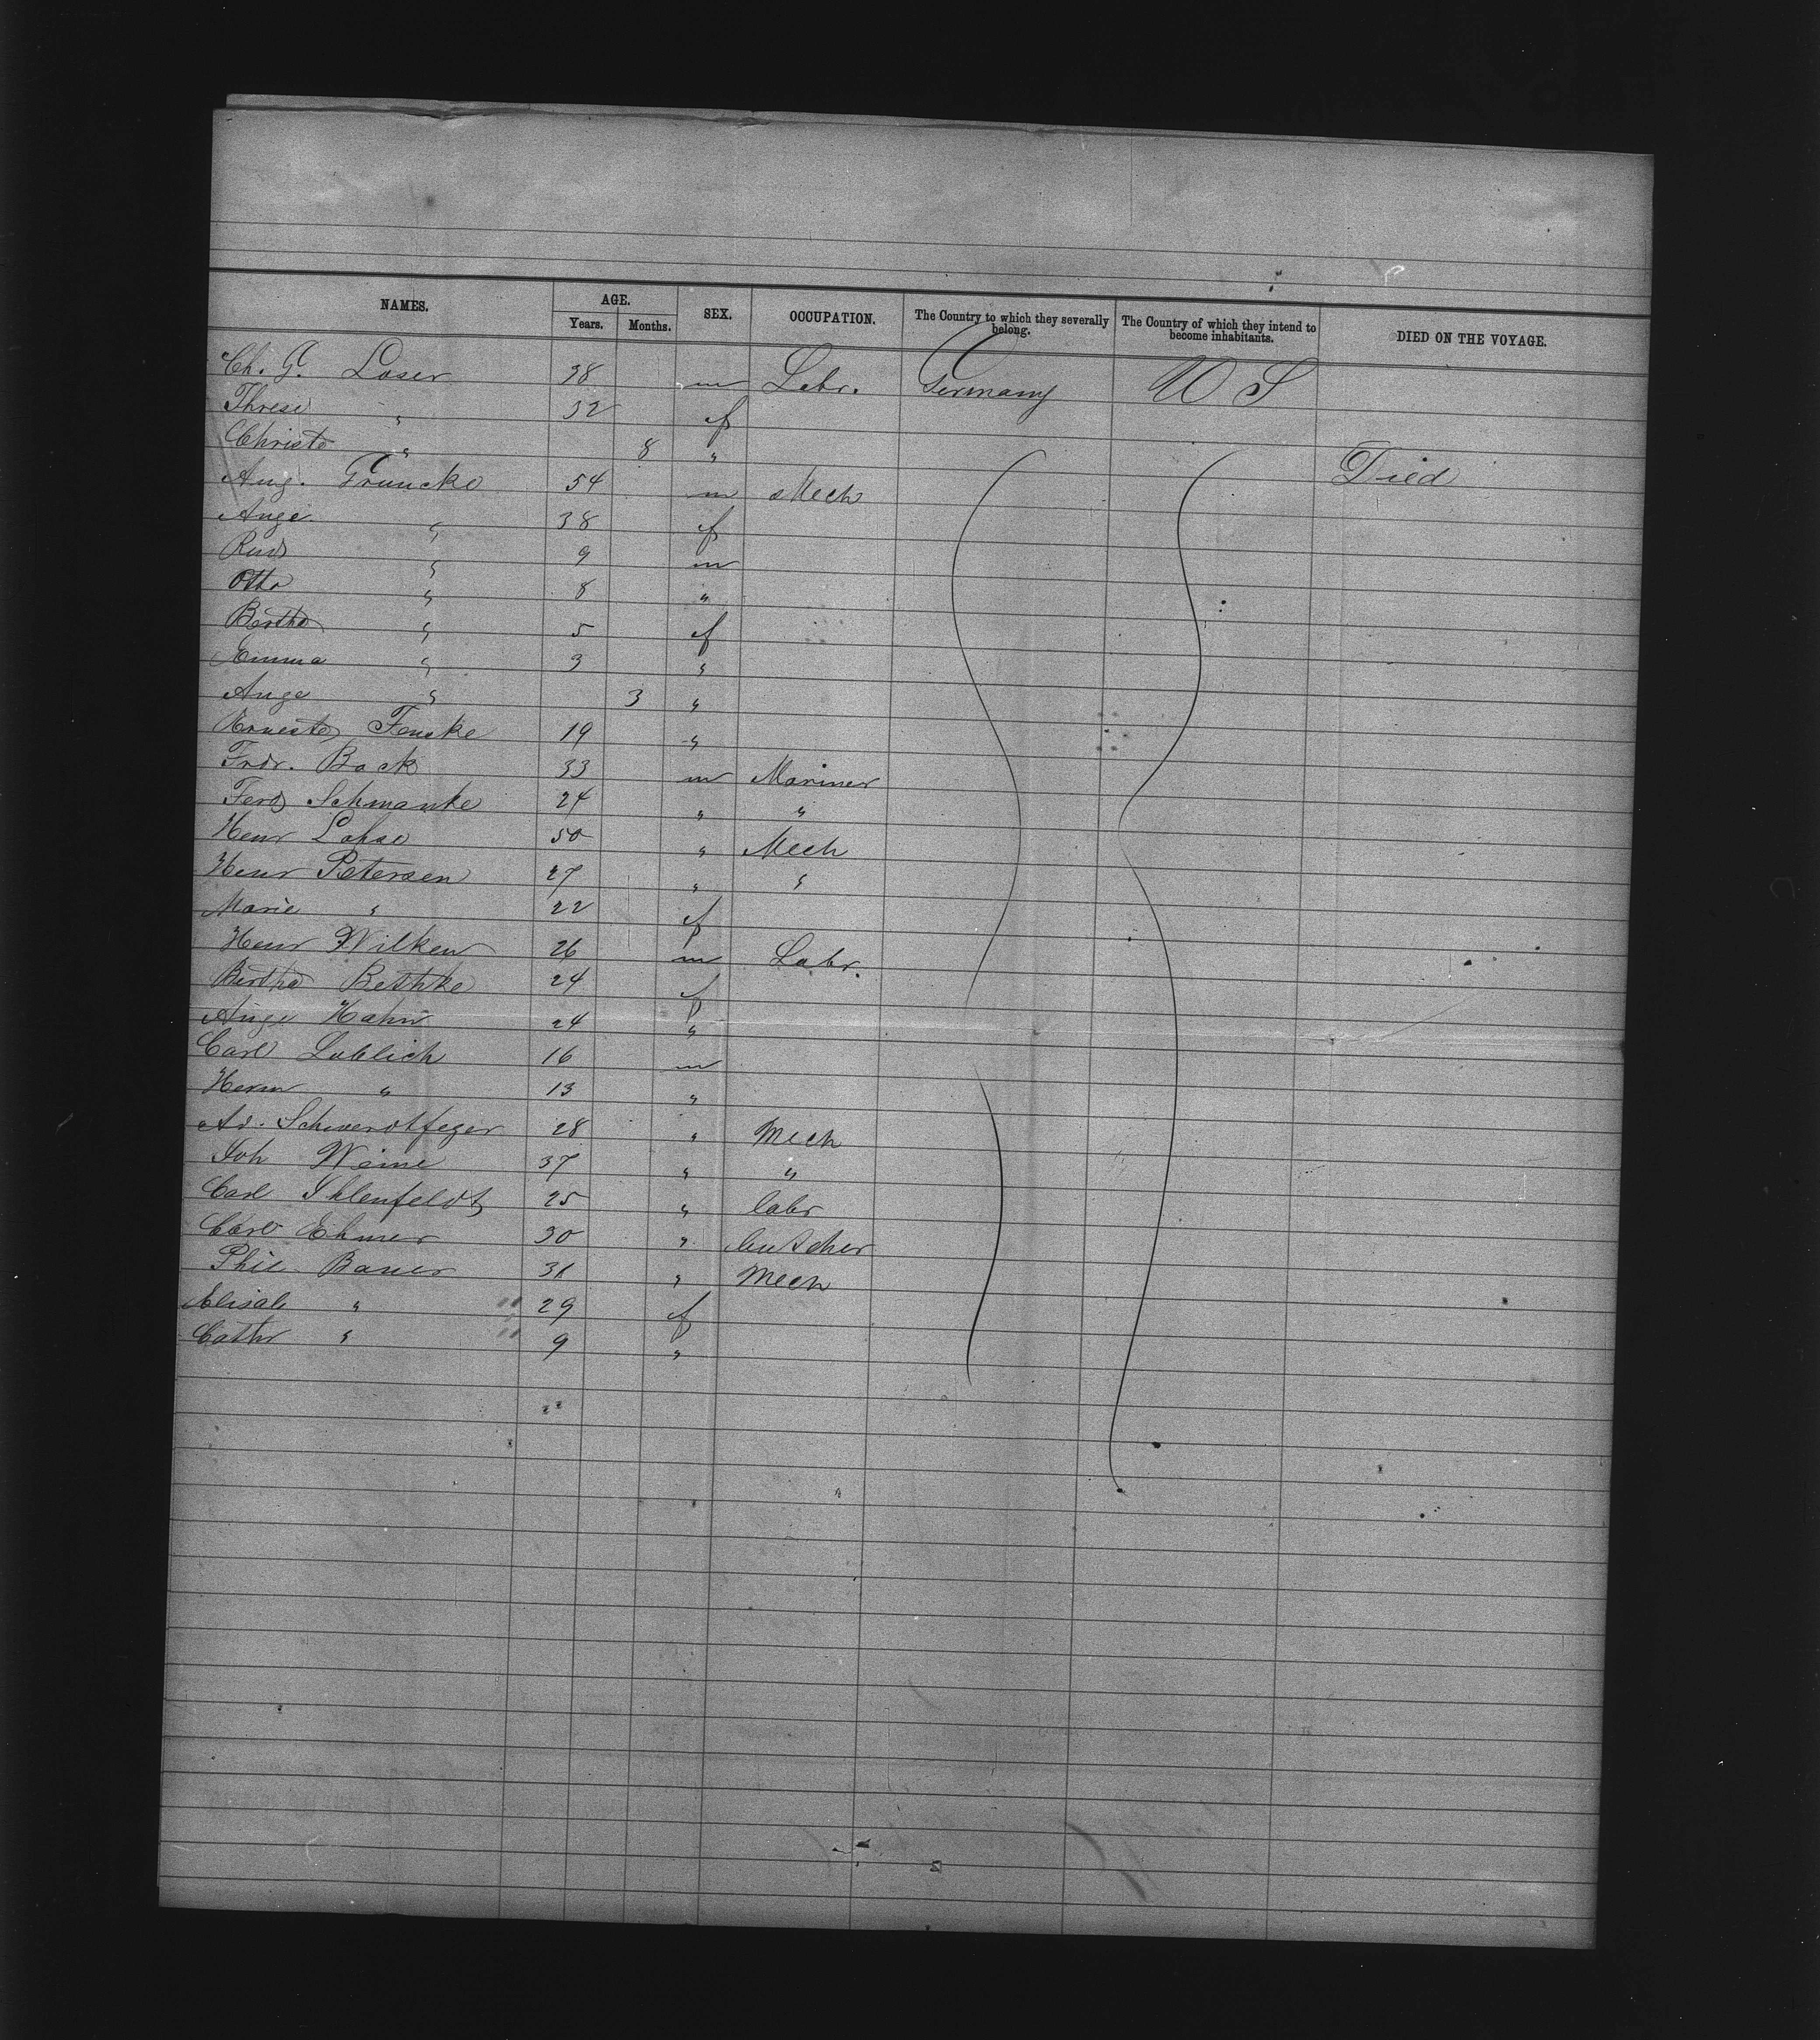 NAMES. AGE. SEX. OCCUPATION. The Country to which they severally belong. The Country of which they intend to become inhabitants. DIED ON THE VOYAGE.
Years. Months.
Ch. G. Loser 38 m Labr. Germany U S
Threse " 32 f
Christe " 8 " Died
Aug. Fruncke 54 m Mech
Auge " 38 f
Rud " 9 m
Otto " 8 "
Bertha " 5 f
Emma " 3 "
Auge " 3 "
Erneste Fenske 19 "
Frdr. Back 33 m Mariner
Ferd Schmanke 24 " "
Henr Lohse 50 " Mech
Henr Petersen 27 " "
Marie " 22 f
Henr Wilken 26 m Labr.
Bertha Bethke 24 f
Auge Hahn 24 "
Carl Lublich 16 m
Herm " 13 "
Ad. Schwerdtfeger 28 " Mech
Joh Weine 37 " "
Carl Ihlenfeldt 25 " labr
Carl Ehmer 30 " butcher
Phil. Bauer 31 " Mech
Elisab " 29 f
Cathr " 9 "